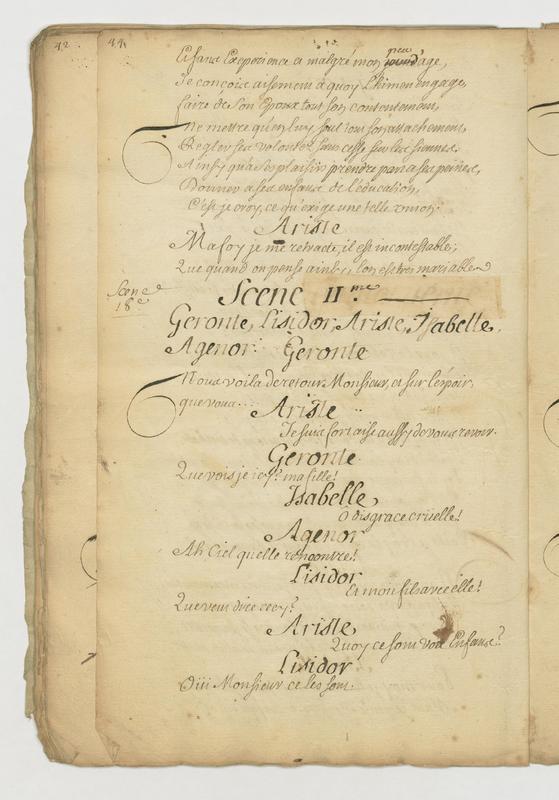 42
44
Enfans Experience et malgré mon peu d'age,
Je conçois aisement a quoy L'himen engage,
faire de son Epoux tout son contentement,
Ne mettre qu'en luy seul tout son attachement,
Regler ses volontez sans cesse sur les siennes,
Ainsy qu'a ses plaisirs prendre part a ses peines,
Donner a ses enfans de l'éducation,
C'est je croy, ce qu'exige une telle union.
Ariste
Ma foy je me retracte, il est incontestable;
Que quand on pense ainsy l'on est tres mariable
Scene
18e
Scene IIme
Geronte, Lisidor, Ariste, Isabelle,
Agenor. Geronte
Nous voila de retour Monsieur, et sur l'espoir,
que vous....
Ariste
Je suis fort aise aussy de vous revoir.
Geronte
Que vois je icy? ma fille!
Isabelle
O disgrace cruelle!
Agenor
Ah Ciel quelle rencontre!
Lisidor
Et mon fils avec elle!
Que veut dire cecy?
Ariste
Quoy ce sont vos Enfans?
Lisidor
Oüi Monsieur ce les sont.